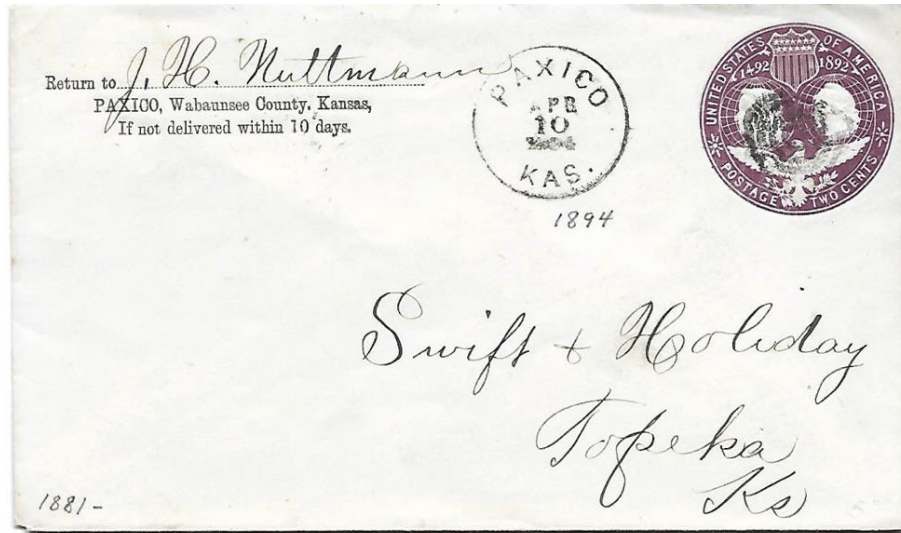 Return to J. H. Nuttmann
PAXICO, Wabaunsee County, Kansas,
If not delivered within 10 days.
PAXICO
APR
10
1894
KAS.
1894
UNITED STATES OF AMERICA
1492 1892
POSTAGE TWO CENTS
Swift + Holiday
Topeka
Ks
1881-